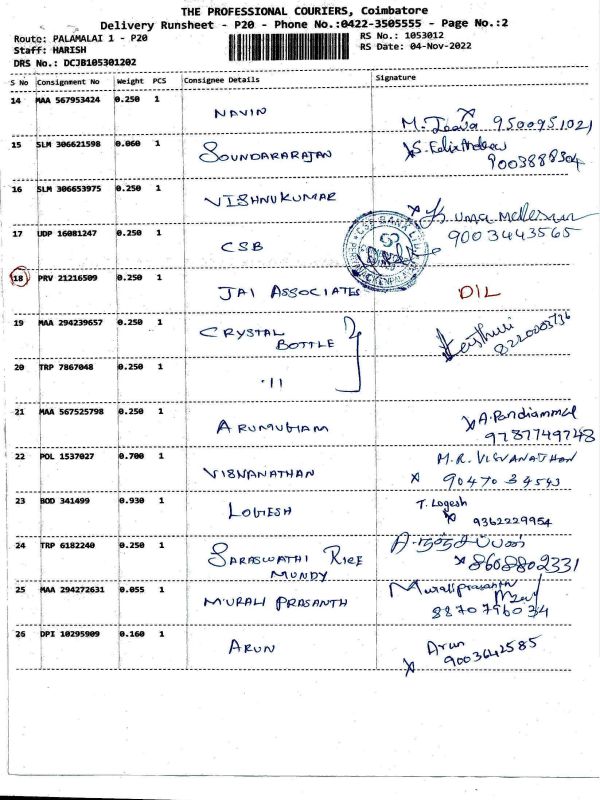 THE PROFESSIONAL COURIERS, Coimbatore
Delivery Runsheet - P20 - Phone No.:0422-3505555 - Page No.:2
Route: PALAMALAI 1 - P20
RS No.: 1053012
Staff: HARISH
RS Date: 04-Nov-2022
DRS No.: DCJB105301202
S No Consignment No Weight PCS Consignee Details Signature
14 MAA 567953424 0.250 1 NAVIN M. Jeeva 9500951021
15 SLM 306621598 0.060 1 SOUNDARARAJAN
9003888304
16 SLM 306653975 0.250 1 VISHNUKUMAR
17 UDP 16081247 0.250 1 CSB 9003443565
CSB BANK LTD
18 PRV 21216509 0.250 1 JAI ASSOCIATES DIL
19 MAA 294239657 0.250 1 CRYSTAL BOTTLE
8220003736
20 TRP 7867048 0.250 1 11
21 MAA 567525798 0.250 1 ARUMUGAM A. Pandiammal
9787749748
22 POL 1537027 0.700 1 VISWANATHAN M.R. VISVANATHAN
9047034543
23 BOD 341499 0.930 1 LOGESH T. Logesh
9362229954
24 TRP 6182240 0.250 1 SARASWATHI RICE MUNDY
8608802331
25 MAA 294272631 0.055 1 MURALI PRASANTH Muraliprasanth
8870796034
26 DPI 10295909 0.160 1 ARUN Arun
9003642585